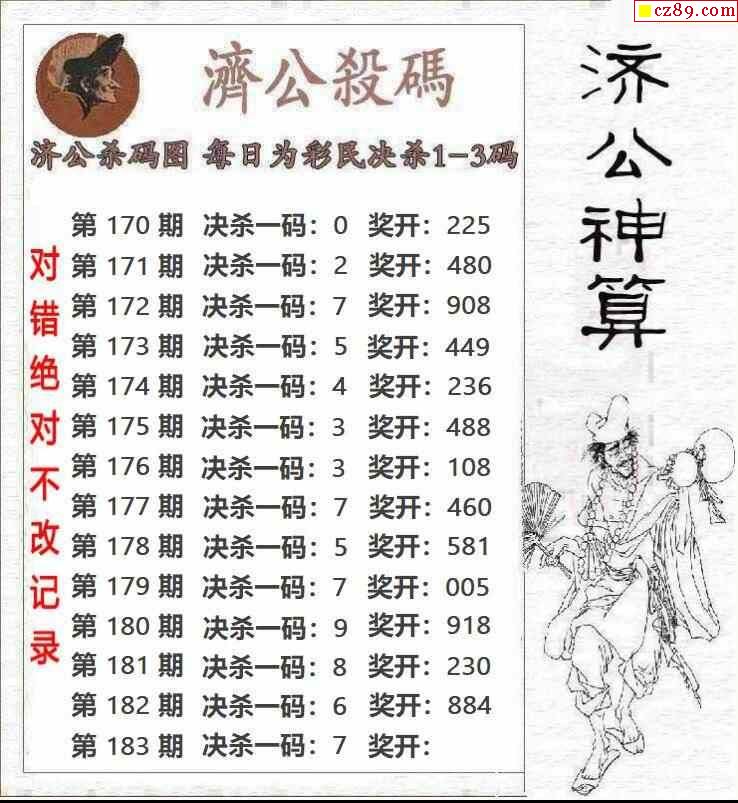 cz89.com
濟公殺碼
济公杀码图 每日为彩民决杀1-3码
第 170 期 决杀一码：0 奖开：225
第 171 期 决杀一码：2 奖开：480
第 172 期 决杀一码：7 奖开：908
第 173 期 决杀一码：5 奖开：449
第 174 期 决杀一码：4 奖开：236
第 175 期 决杀一码：3 奖开：488
第 176 期 决杀一码：3 奖开：108
第 177 期 决杀一码：7 奖开：460
第 178 期 决杀一码：5 奖开：581
第 179 期 决杀一码：7 奖开：005
第 180 期 决杀一码：9 奖开：918
第 181 期 决杀一码：8 奖开：230
第 182 期 决杀一码：6 奖开：884
第 183 期 决杀一码：7 奖开：
对错绝对不改记录
济公神算